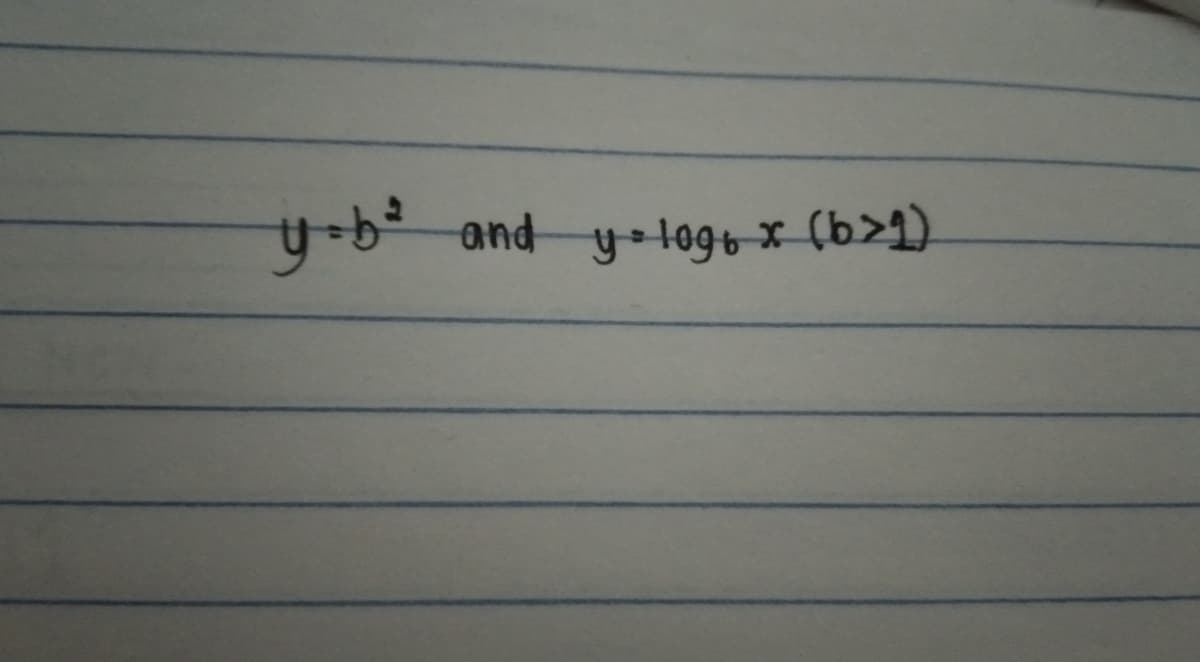 y=b² and y=log₆ x (b>1)